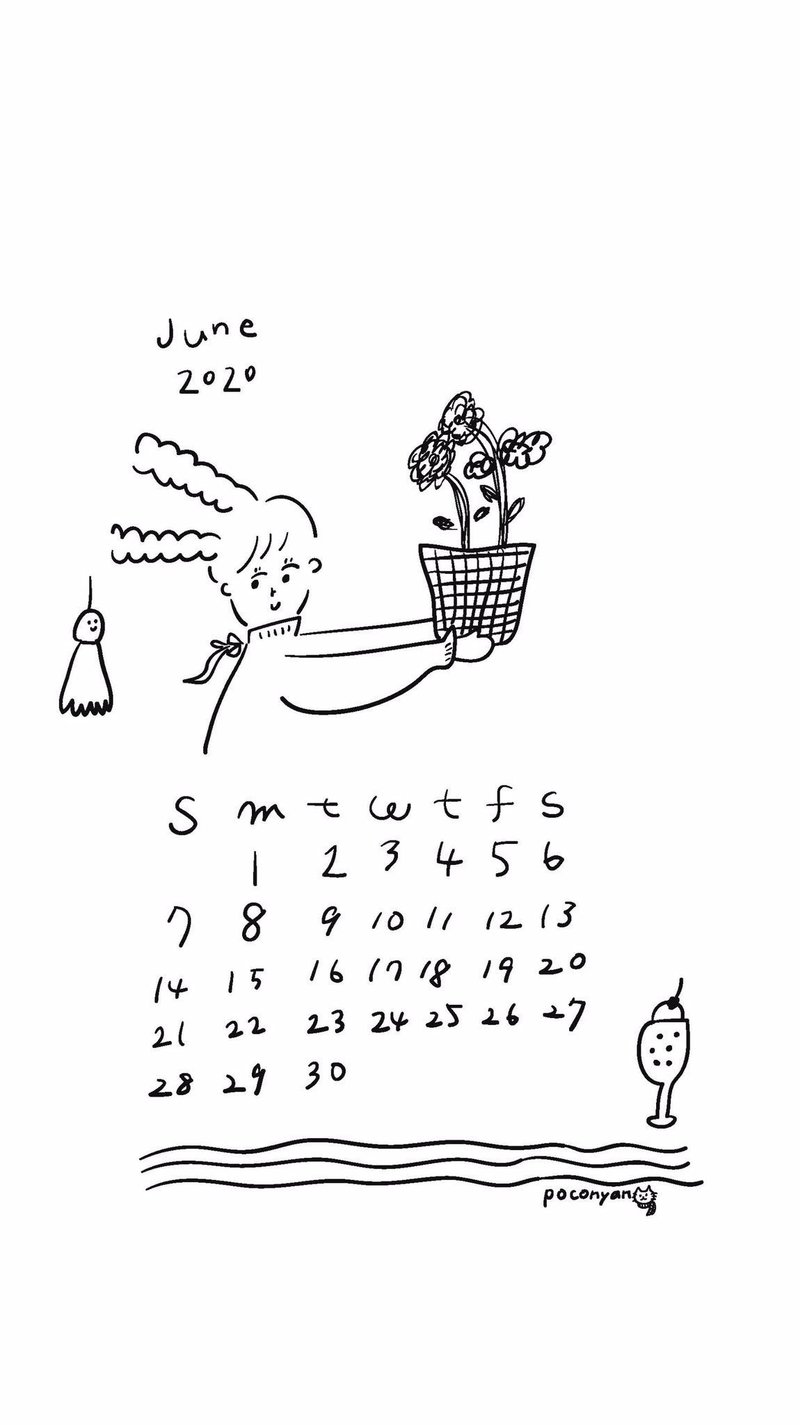 June
2020
S m t w t f s
1 2 3 4 5 6
7 8 9 10 11 12 13
14 15 16 17 18 19 20
21 22 23 24 25 26 27
28 29 30
poconyan